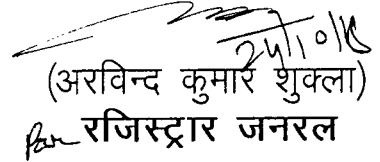 24/10/18
(अरविन्द कुमार शुक्ला)
रजिस्ट्रार जनरल